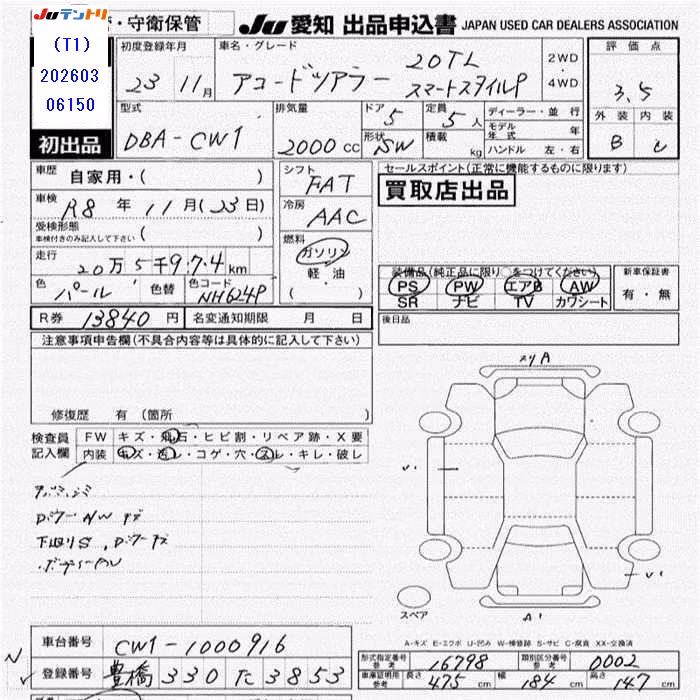 Juテントリ
・守衛保管
Ju 愛知 出品申込書 JAPAN USED CAR DEALERS ASSOCIATION
(T1)
202603
06150
初出品
初度登録年月
23 11月
車名・グレード
アコードツアラー 20TL スマートスタイルP
2WD
・
4WD
評価点
3.5
外装 内装
B C
型式
DBA-CW1
排気量
2000 cc
ドア 5
形状 SW
定員 5 人
積載 kg
ディーラー・並行
モデル年式 年
ハンドル 左・右
車歴
自家用・( )
車検
R8 年 11月(23日)
受検形態
車検付きのみ記入して下さい ( )
走行
20万5千974km
色 パール 色替 色コード NH624P
シフト FAT
冷房 AAC
燃料
ガソリン
軽・油
( )
セールスポイント(正常に機能するものに限ります)
買取店出品
装備品(純正品に限り○をつけてください)
PS PW エアB AW
SR ナビ TV カワシート
新車保証書
有・無
R券 13840 円 名変通知期限 月 日
後日品
注意事項申告欄(不具合内容等は具体的に記入して下さい)
修復歴 有(箇所 )
検査員
記入欄
FW キズ・飛石・ヒビ割・リペア跡・X要
内装 キズ・汚レ・コゲ・穴・スレ・キレ・破レ
メリA
A1
スペア
A-キズ E-エクボ U-凹み W-補修跡 S-サビ C-腐食 XX-交換済
車台番号 CW1-1000916
登録番号 豊橋 330 た 3853
形式指定番号 参考 16798 類別区分番号 参考 0002
車庫証明用 参考 長さ 475 cm 幅 184 cm 高さ 147 cm